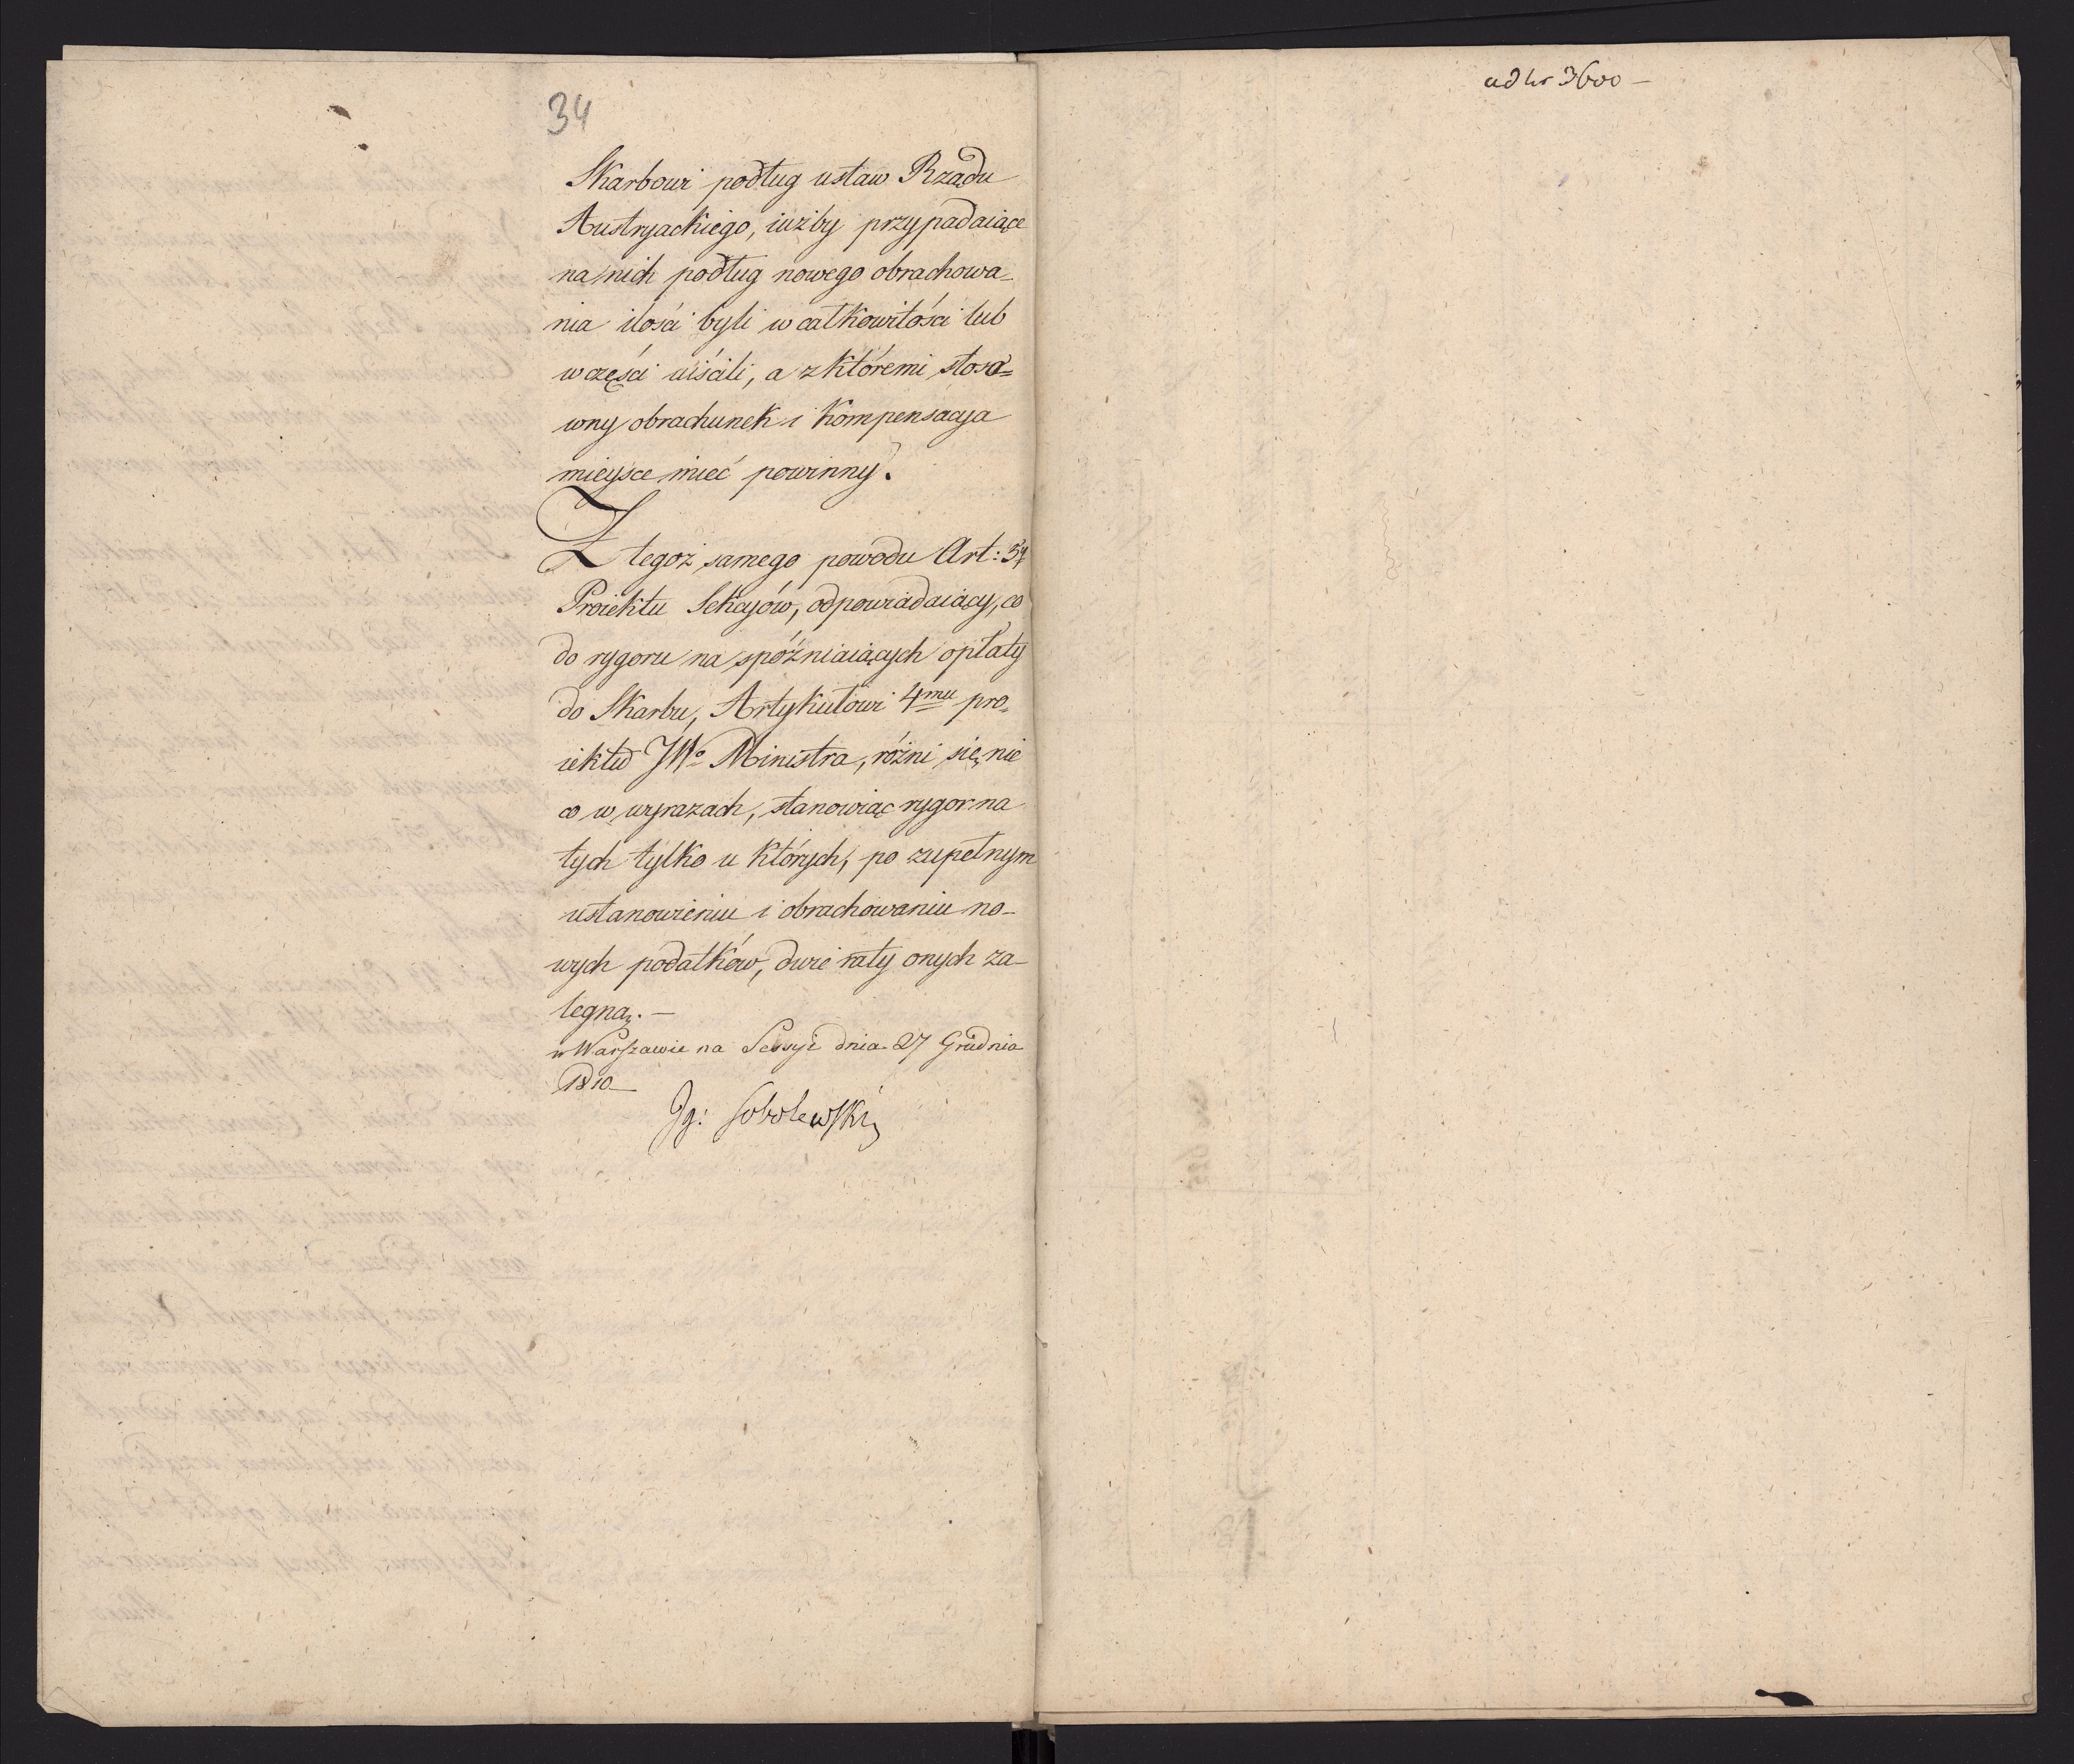 34
Skarbowi podług ustaw Rządu
Austryackiego, iużby przypadaiące
na nich podług nowego obrachowa-
nia ilości byli w całkowitości lub
w części uiścili, a z któremi stoso=
wny obrachunek i kompensacya
mieysce mieć powinny.
Z tegoż samego powodu Art: 5ty
Proiektu Sekcyów, odpowiadaiący, co
do rygoru na spóźniaiących opłaty
do Skarbu, Artykułowi 4mu pro=
iektu JWo Ministra, różni się nie
co w wyrazach, stanowiąc rygor na
tych tylko u których, po zupełnym
ustanowieniu i obrachowaniu no-
wych podatków, dwie raty onych za-
legną. —
w Warszawie na Sessyi dnia 27 Grudnia
1810 —
Ig: Sobolewski
ad Nr 3600 —